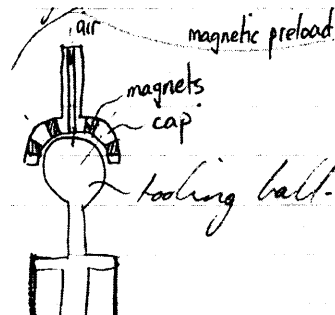 air
magnetic preload
magnets
cap
tooling ball.